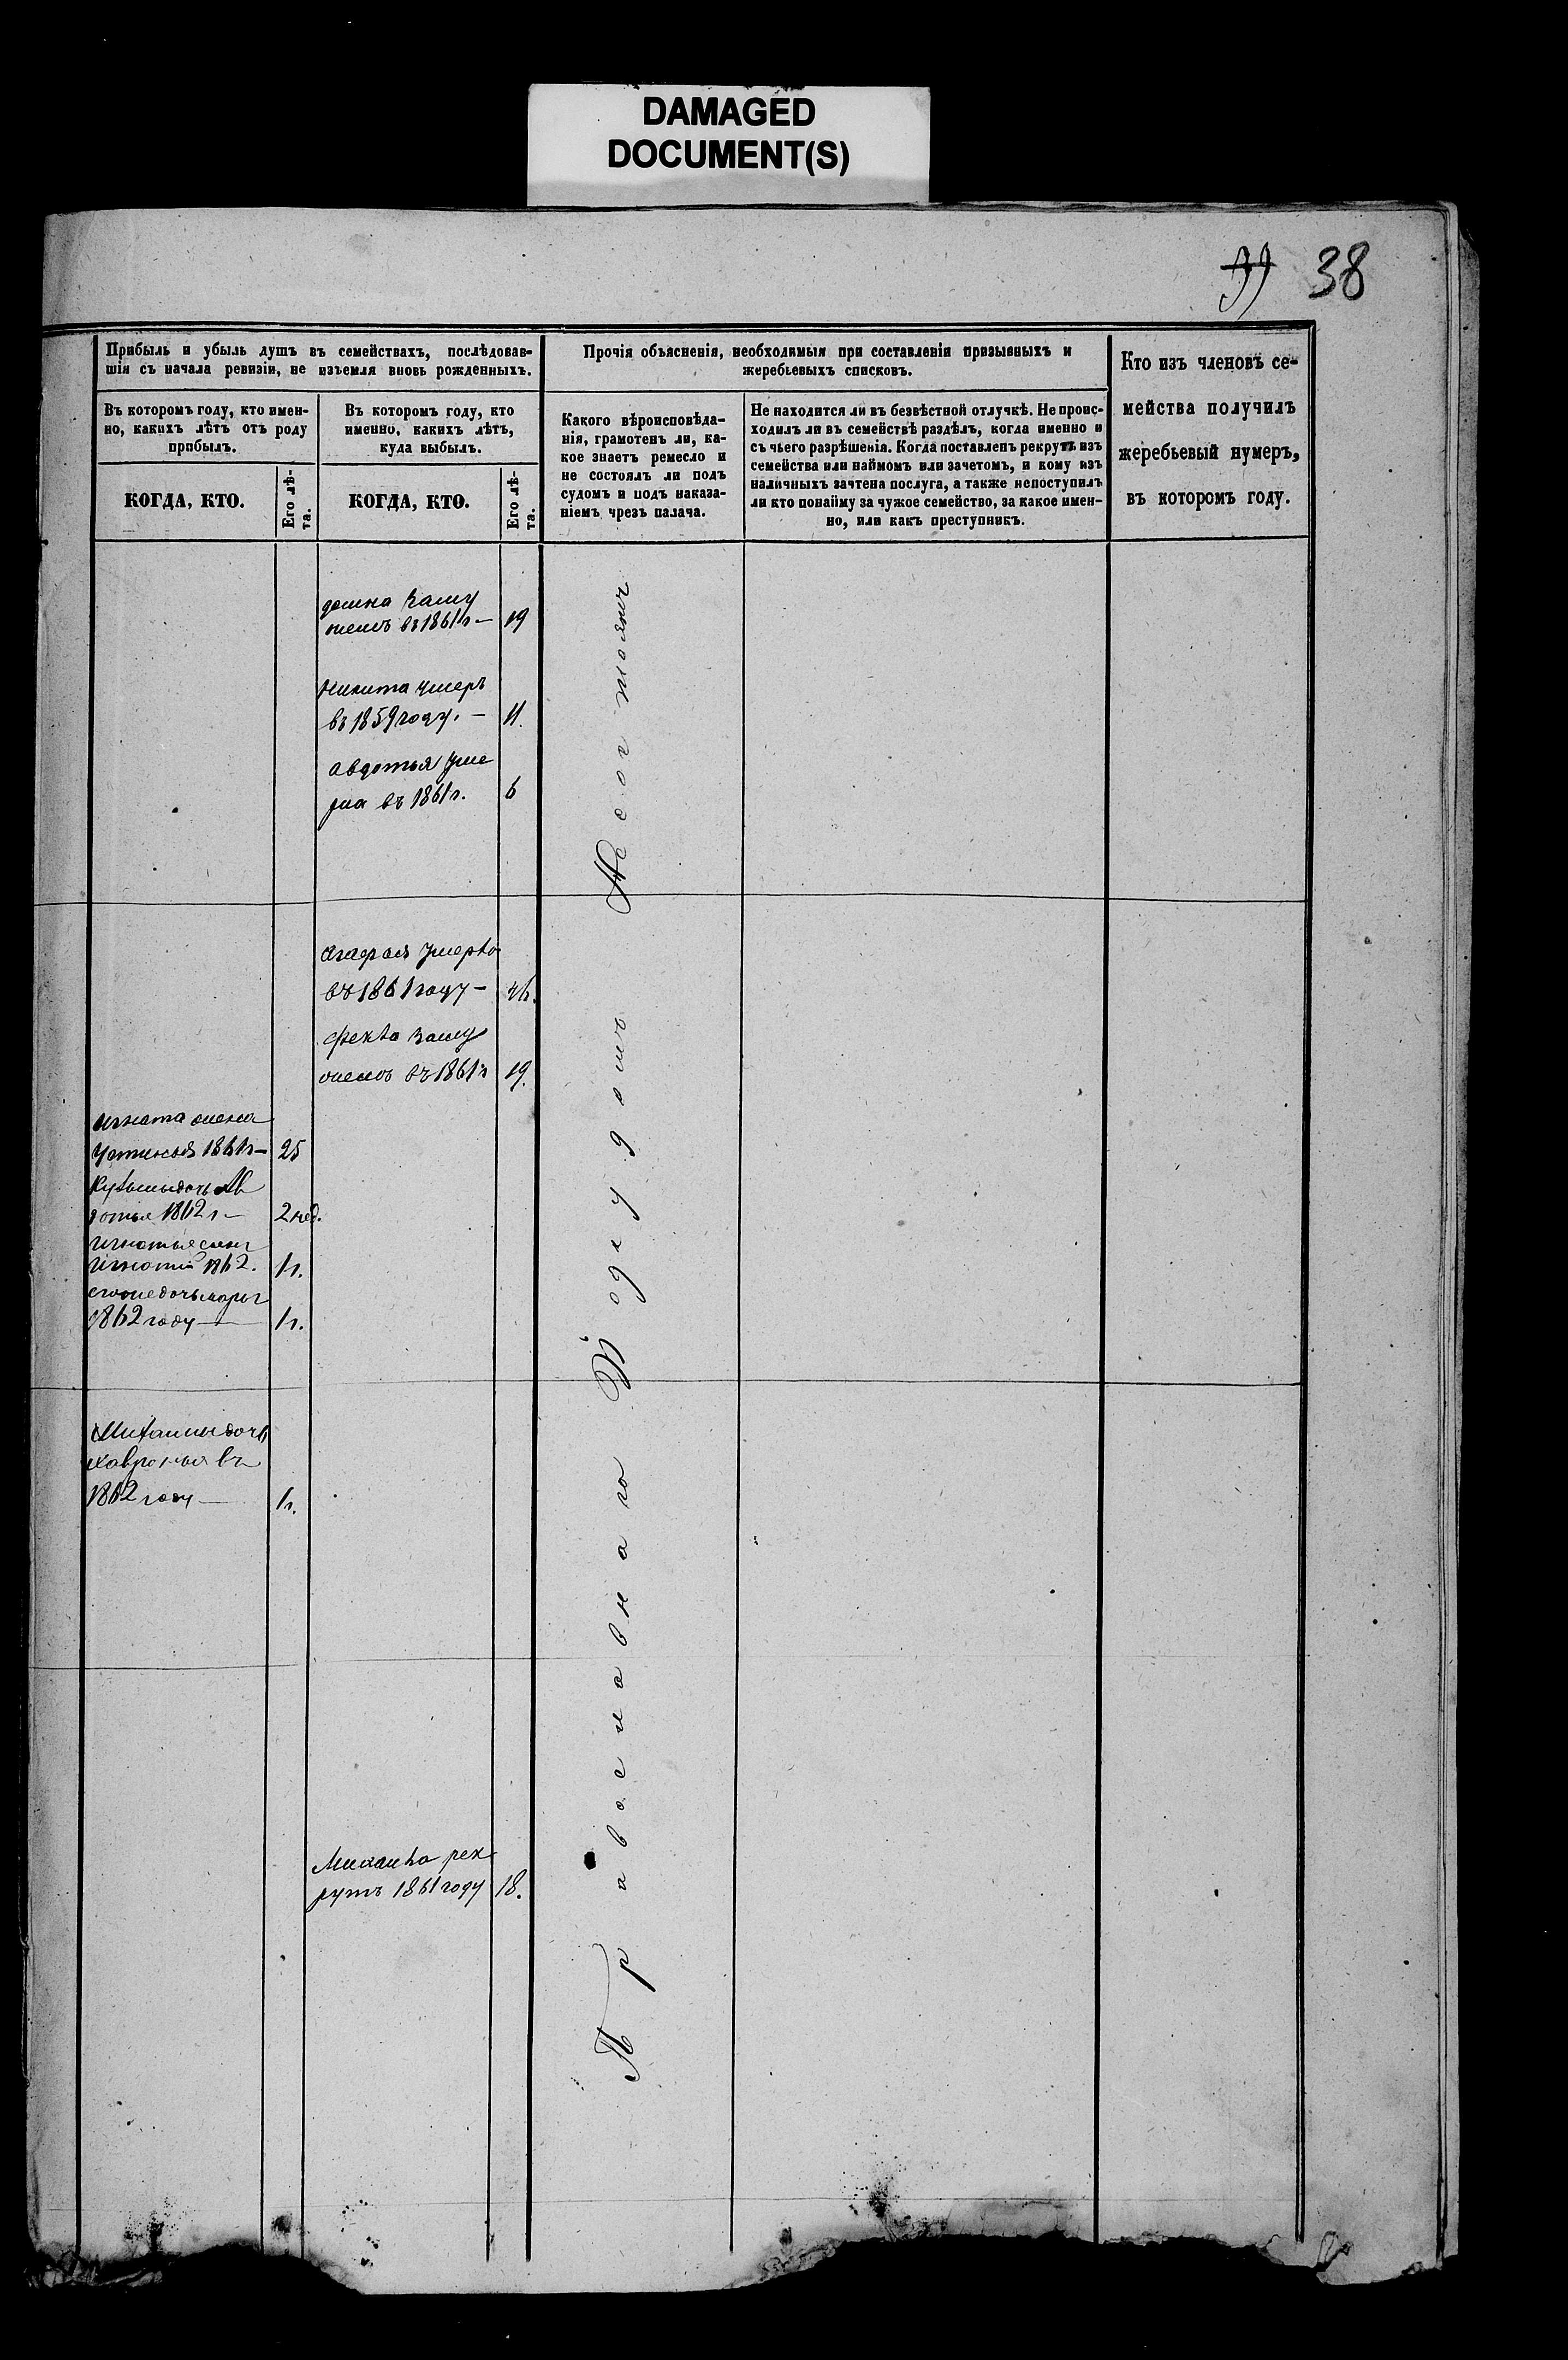 DAMAGED
DOCUMENT(S)
38
Прибыль и убыль душъ въ семействахъ, послѣдовав-
шія съ начала ревизіи, не изъемля вновь рожденныхъ.
Прочія объясненія, необходимыя при составленіи призывныхъ и
жеребьевыхъ списковъ.
Кто изъ членовъ се-
мейства получилъ
жеребьевый нумеръ,
въ которомъ году.
Въ которомъ году, кто имен-
но, какихъ лѣтъ отъ роду
прибылъ.
Въ которомъ году, кто
именно, какихъ лѣтъ,
куда выбылъ.
Какого вѣроисповѣда-
нія, грамотенъ ли, ка-
кое знаетъ ремесло и
не состоялъ ли подъ
судомъ и подъ наказа-
ніемъ чрезъ палача.
Не находится ли въ безвѣстной отлучкѣ. Не проис-
ходилъ ли въ семействѣ раздѣлъ, когда именно и
съ чьего разрѣшенія. Когда поставленъ рекрутъ изъ
семейства или наймомъ или зачетомъ, и кому изъ
наличныхъ зачтена послуга, а также непоступилъ
ли кто понайму за чужое семейство, за какое имен-
но, или какъ преступникъ.
КОГДА, КТО.
Его лѣ-
та.
КОГДА, КТО.
Его лѣ-
та.
замy
жемъ въ 1861 г — 19
Никита умеръ
въ 1859 году. — 11.
Авдотья уме
рла въ 1861 г. 6
Агафья умерла
въ 1861 году —
Фекла заму
жемъ въ 1861 г 19.
Игната жена
Устинья 1861 г — 25
дочь Ав
дотья 1862 г — 2 нед.
Игнатья сынъ
Игнатій 1862. 1 г.
егоже дочь
1862 году — 1 г.
Михаилы дочь
Хавронья въ
1862 году — 1 г.
Михаила рек
рутъ 1861 году 18.
Православнаго
Подъ судомъ
Несостоялъ